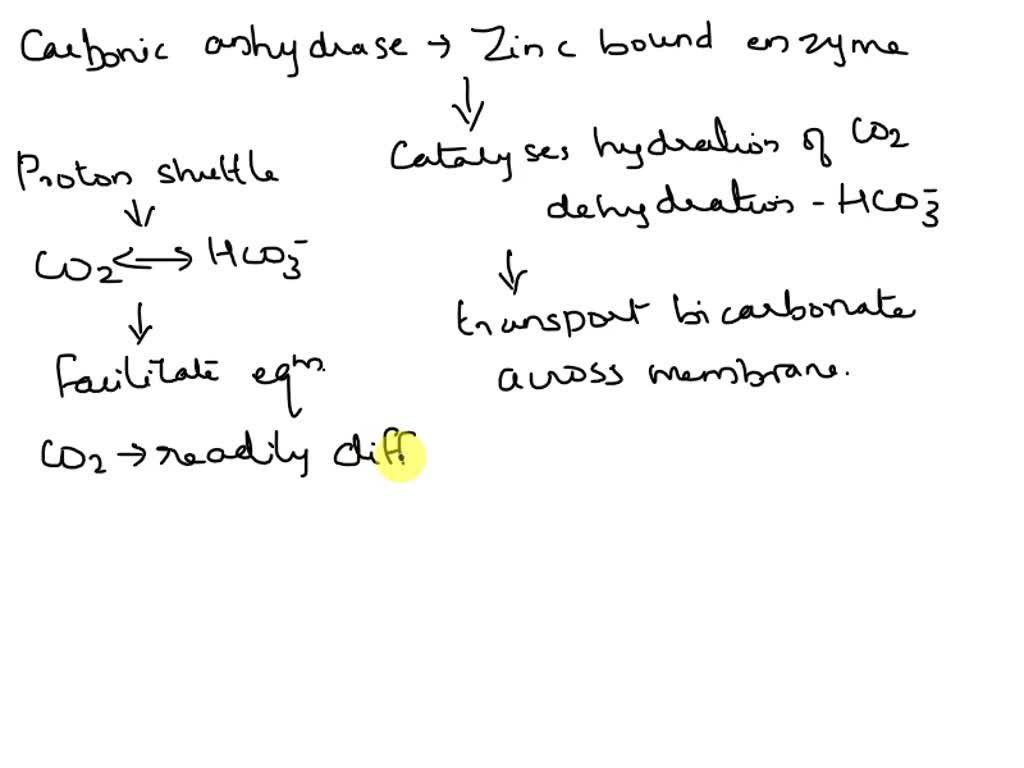 Carbonic anhydrase → Zinc bound enzyme
↓
Catalyses hydration of CO2
dehydration - HCO3-
↓
transport bicarbonate
across membrane.
Proton shuttle
↓
CO2 ↔ HCO3-
↓
Facilitate eqm.
CO2 → readily diff